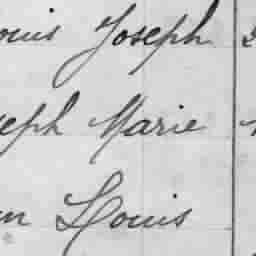 ouis Joseph
seph Marie
n Louis